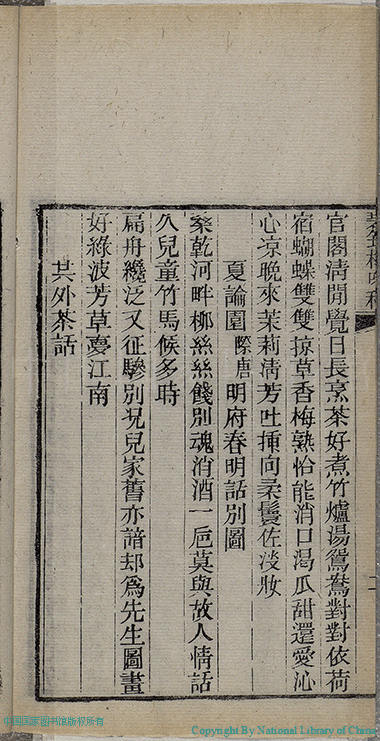 官閣清閒覺日長烹茶好煮竹爐湯鴛鴦對對依荷
宿蝴蝶雙雙掠草香梅熟恰能消口渴瓜甜還愛沁
心凉晚來茉莉清芳吐揷向柔鬟佐淡妝
夏論園際唐明府春明話別圖
桑乾河畔柳絲絲餞別魂消酒一巵莫與故人情話
久兒童竹馬候多時
扁舟纔泛又征驂別況兒家舊亦諳却為先生圖畫
好綠波芳草夢江南
共外茶話
中國国家图书馆版权所有
Copyright By National Library of China